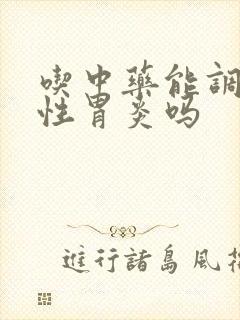 喫中藥能調
性胃炎嗎
進行諸島風